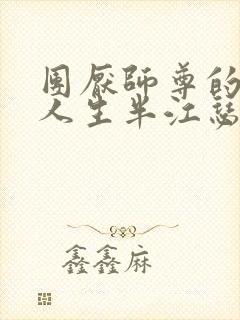 團厭師尊的
人生半江瑟
鑫鑫麻